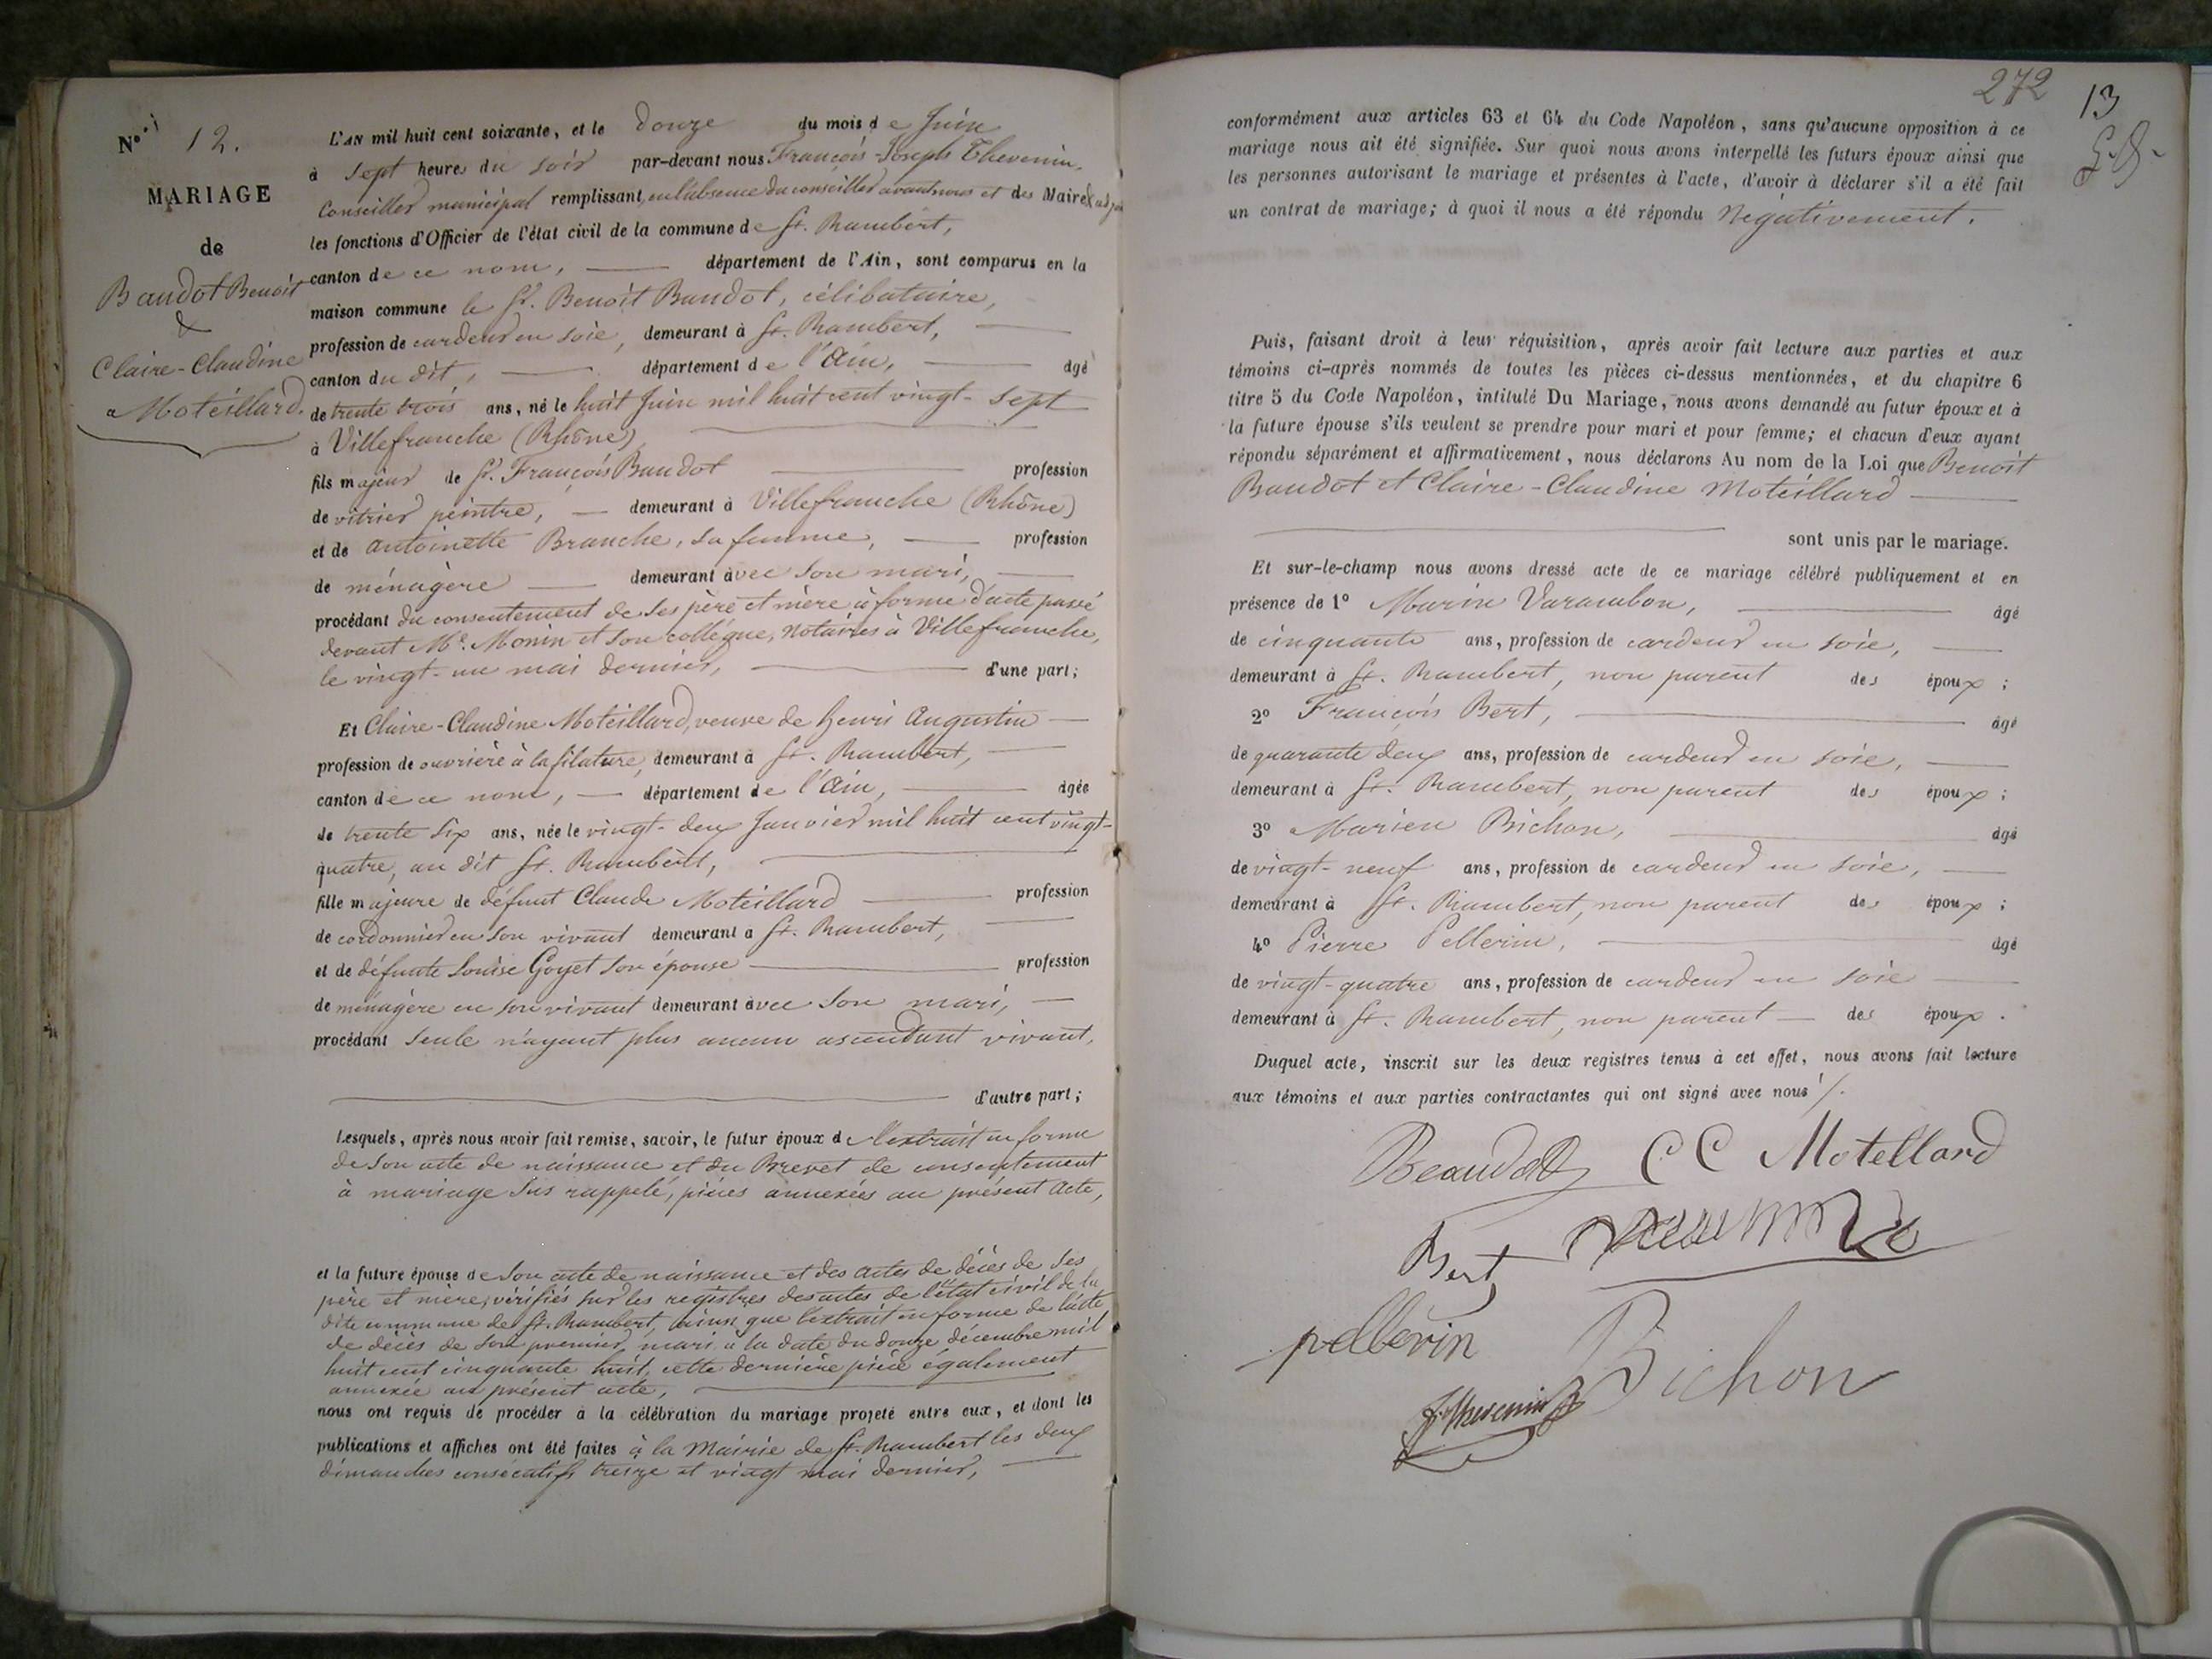 N° 12.
MARIAGE
de
Baudot Benoit
&
Claire-Claudine
Moteillard.
L'AN mil huit cent soixante, et le douze du mois de Juin
à sept heures du soir par-devant nous François-Joseph Thevenin,
Conseiller municipal remplissant, en l'absence du conseiller avant nous et des Maire &
les fonctions d'Officier de l'état civil de la commune de St. Rambert,
canton de ce nom, département de l'Ain, sont comparus en la
maison commune le Sr. Benoit Baudot, célibataire,
profession de cardeur en soie, demeurant à St. Rambert,
canton du dit, département de l'Ain, âgé
de trente trois ans, né le huit Juin mil huit cent vingt-sept
à Villefranche (Rhône)
fils majeur de Sr. François Baudot profession
de vitrier peintre, demeurant à Villefranche (Rhône)
et de Antoinette Branche, sa femme, profession
de ménagère demeurant avec son mari,
procédant du consentement de ses père et mère à forme d'acte passé
devant Me. Monin et son collègue, notaires à Villefranche,
le vingt-un mai dernier, d'une part;
Et Claire-Claudine Moteillard, veuve de Henri Augustin
profession de ouvrière à la filature, demeurant à St. Rambert,
canton de ce nom, département de l'Ain, âgée
de trente six ans, née le vingt-deux Janvier mil huit cent vingt-
quatre, au dit St. Rambert,
fille majeure de défunt Claude Moteillard profession
de cordonnier en son vivant demeurant à St. Rambert,
et de défunte Louise Goyet son épouse profession
de ménagère en son vivant demeurant avec son mari,
procédant seule n'ayant plus aucun ascendant vivant,
d'autre part;
Lesquels, après nous avoir fait remise, savoir, le futur époux de l'extrait en forme
de son acte de naissance et du Brevet de consentement
à mariage sus rappelé, pièces annexées au présent acte,
et la future épouse de son acte de naissance et des actes de décès de ses
père et mère, vérifiés sur les registres des actes de l'état civil de la
dite commune de St. Rambert, ainsi que l'extrait en forme de l'acte
de décès de son premier mari à la date du douze décembre mil
huit cent cinquante huit, cette dernière pièce également
annexée au présent acte,
nous ont requis de procéder à la célébration du mariage projeté entre eux, et dont les
publications et affiches ont été faites à la Mairie de St. Rambert les deux
dimanches consécutifs treize et vingt mai dernier,
272
13
conformément aux articles 63 et 64 du Code Napoléon, sans qu'aucune opposition à ce
mariage nous ait été signifiée. Sur quoi nous avons interpellé les futurs époux ainsi que
les personnes autorisant le mariage et présentes à l'acte, d'avoir à déclarer s'il a été fait
un contrat de mariage; à quoi il nous a été répondu Négativement.
Puis, faisant droit à leur réquisition, après avoir fait lecture aux parties et aux
témoins ci-après nommés de toutes les pièces ci-dessus mentionnées, et du chapitre 6
titre 5 du Code Napoléon, intitulé Du Mariage, nous avons demandé au futur époux et à
la future épouse s'ils veulent se prendre pour mari et pour femme; et chacun d'eux ayant
répondu séparément et affirmativement, nous déclarons Au nom de la Loi que Benoit
Baudot et Claire-Claudine Moteillard
sont unis par le mariage.
Et sur-le-champ nous avons dressé acte de ce mariage célébré publiquement et en
présence de 1° Marin Varambon, âgé
de cinquante ans, profession de cardeur en soie,
demeurant à St. Rambert, non parent des époux;
2° François Bert, âgé
de quarante deux ans, profession de cardeur en soie,
demeurant à St. Rambert, non parent des époux;
3° Marien Bichon, âgé
de vingt-neuf ans, profession de cardeur en soie,
demeurant à St. Rambert, non parent des époux;
4° Pierre Pellerin, âgé
de vingt-quatre ans, profession de cardeur en soie
demeurant à St. Rambert, non parent des époux.
Duquel acte, inscrit sur les deux registres tenus à cet effet, nous avons fait lecture
aux témoins et aux parties contractantes qui ont signé avec nous /.
Beaudot CC Motellard
Bert
pellerin Bichon
J. Thevenin